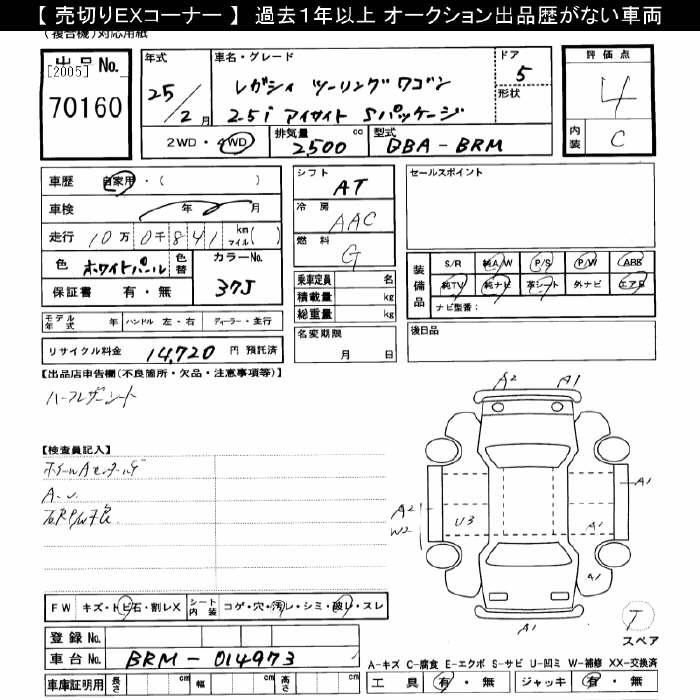 【 売切りEXコーナー 】 過去1年以上 オークション出品歴がない車両
(複合機)対応用紙
出品No.
[2005]
70160
年式
25/2月
車名・グレード
レガシィ ツーリングワゴン
2.5i アイサイト Sパッケージ
ドア
5
形状
評価点
4
内装
C
2WD・4WD
排気量
2500 cc
型式
DBA-BRM
車歴 自家用・( )
車検 年 月
走行 10万0千841 km マイル( )
色 ホワイトパール
色替
カラーNo.
37J
保証書 有・無
モデル年式 年 ハンドル 左・右 ディーラー・並行
リサイクル料金 14,720 円 預託済
シフト
AT
冷房
AAC
燃料
G
乗車定員 名
積載量 kg
総重量 kg
名変期限
月 日
セールスポイント
装備品
S/R 純A/W P/S P/W ABS
純TV 純ナビ 革シート 外ナビ エアB
ナビ型番:
後日品
【出品店申告欄(不良箇所・欠品・注意事項等)】
ハーフレザーシート
【検査員記入】
FW キズ・トビ石・割レX
シート内装 コゲ・穴・汚レ・シミ・破レ・スレ
登録No.
車台No. BRM-014973
車庫証明用 長さ cm 幅 cm 高さ cm
A2
A1
A2
W2
U3
A1
A1
A1
A1
T
スペア
A-キズ C-腐食 E-エクボ S-サビ U-凹ミ W-補修 XX-交換済
工具 有・無 ジャッキ 有・無